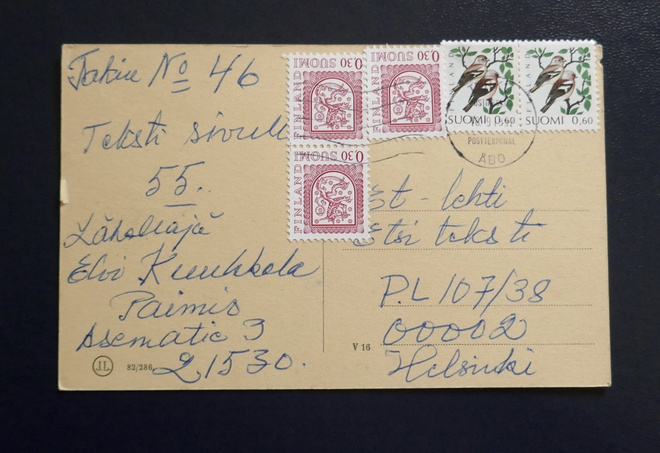 No 46
Teksti sivull
55.
Lähettäjä
Elvi Kuukkola
Paimio
Asematie 3
21530.
J.L.
82/286
FINLAND
SUOMI 0,30
FINLAND
SUOMI 0,30
FINLAND
SUOMI 0,30
SUOMI 0,60
SUOMI 0,60
POSTTERMINAL
ÅBO
V 16
- lehti
Etsi teksti
P.L 107/38
00002
Helsinki